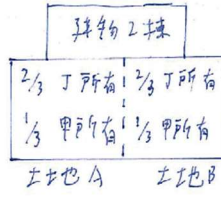 建物2棟
2/3 丁所有 2/3 丁所有
1/3 甲所有 1/3 甲所有
土地A 土地B